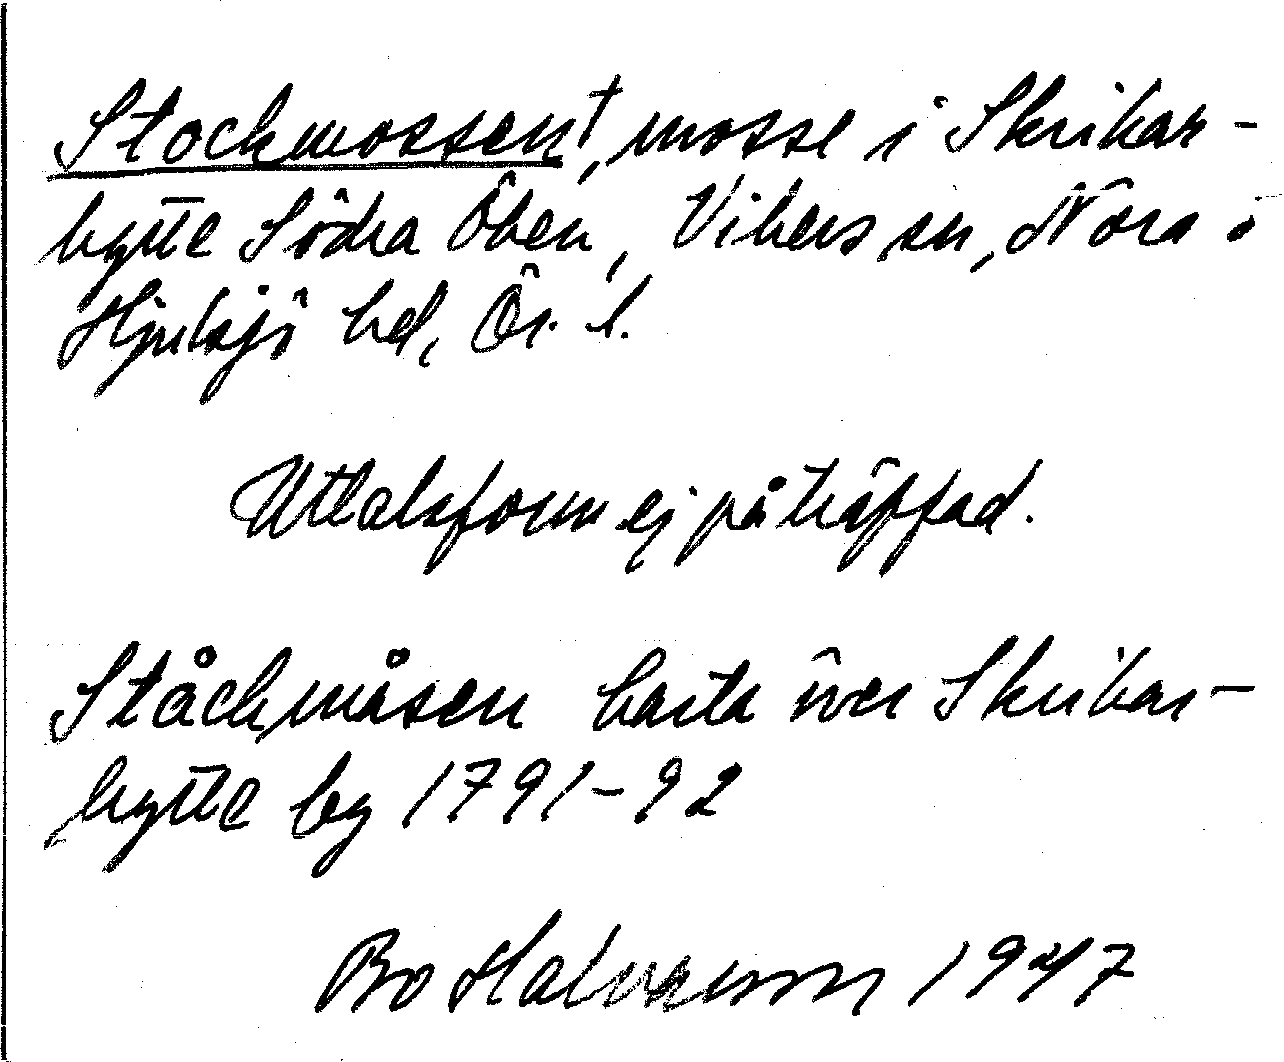 Stockmossen†, mosse i Skrikar-
hytte Södra Öken, Vikers sn, Nora o
Hjulsjö hd, Ör. l.
Uttalsform ej påträffad.
Ståckmåsen karta över Skrikar-
hytte by 1791-92
Bo 1947